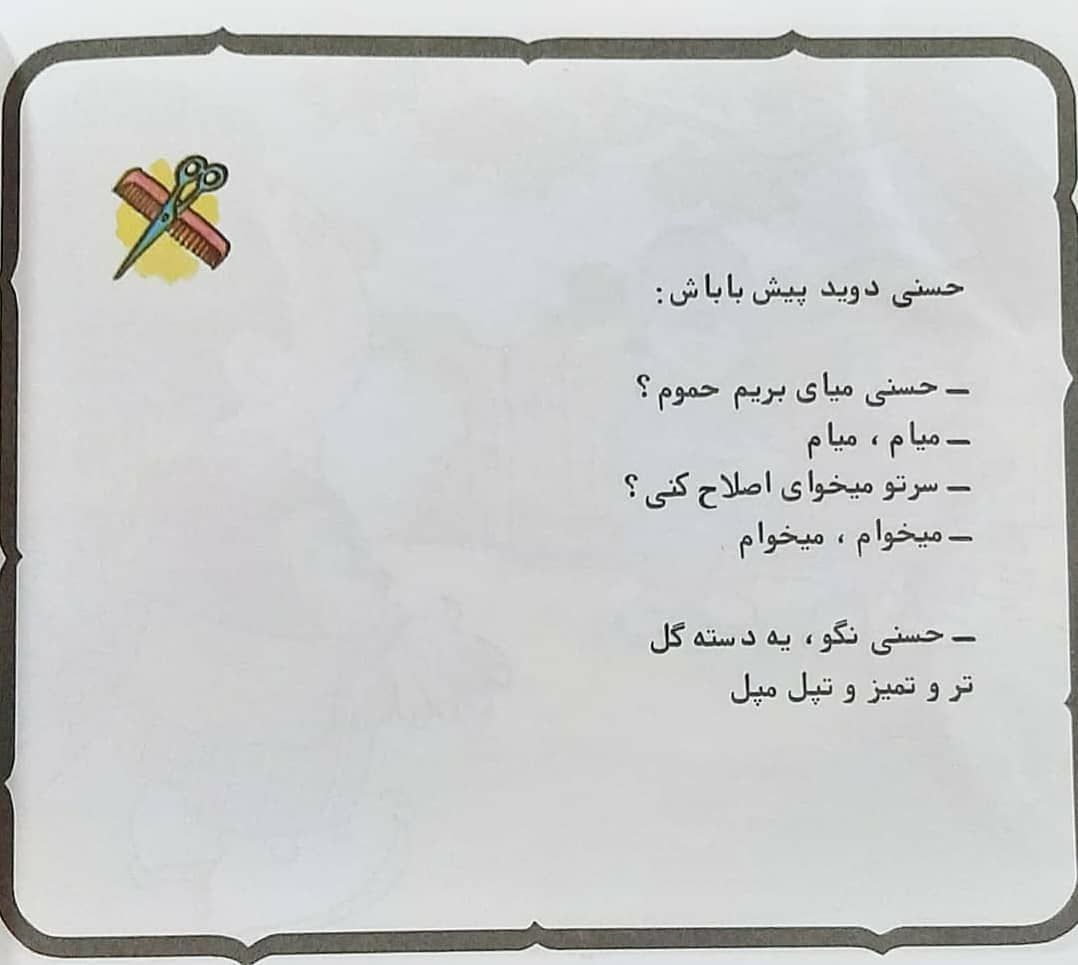 حسنی دوید پیش باباش:
ـ حسنی میای بریم حموم؟
ـ میام ، میام
ـ سرتو میخوای اصلاح کنی؟
ـ میخوام ، میخوام
ـ حسنی نگو، یه دسته گل
تر و تمیز و تپل مپل